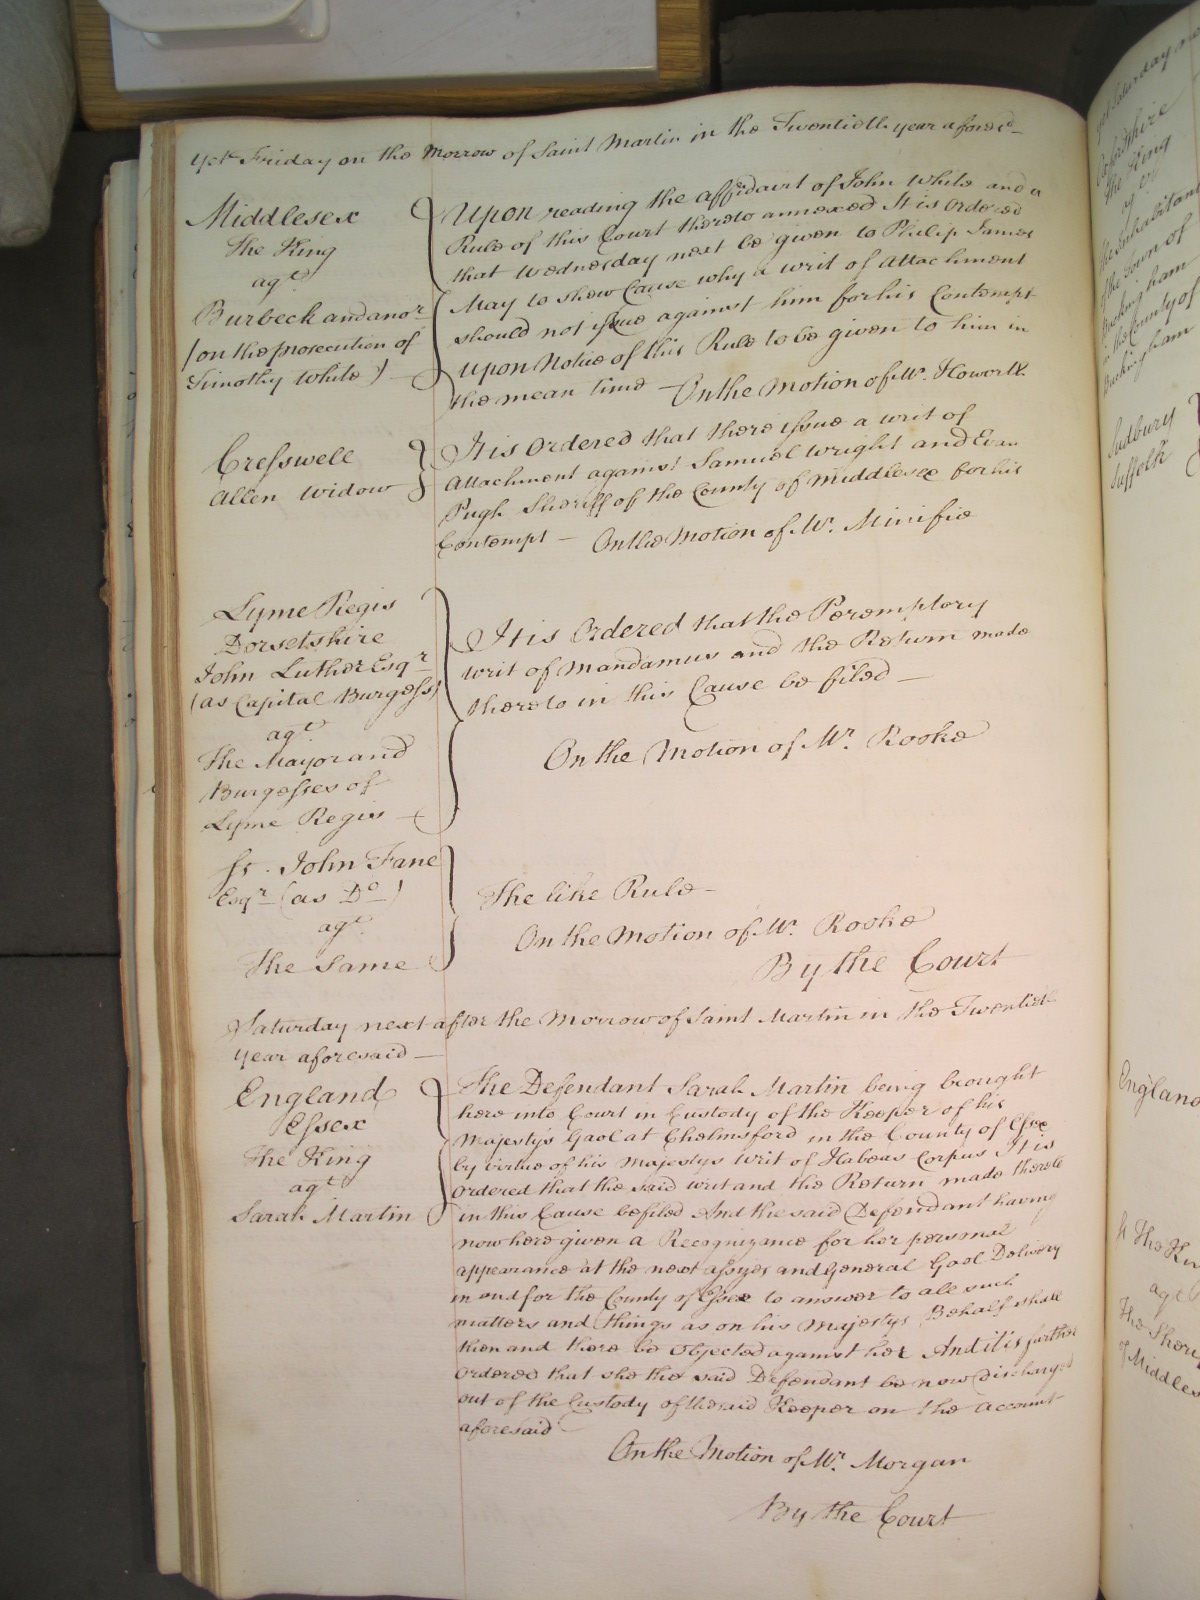 Yet Friday on the Morrow of Saint Martin in the Twentieth year aforesd
Middlesex
The King
agt
Burbeck and anor
(on the prosecution of
Timothy White)
Upon reading the affidavit of John White and a
Rule of this Court thereto annexed It is Ordered
that Wednesday next be given to Philip James
May to shew Cause why a writ of Attachment
should not issue against him for his Contempt
upon Notice of this Rule to be given to him in
the mean time – On the Motion of Mr. Howorth
Cresswell
Allen Widow
It is Ordered that there issue a writ of
Attachment against Samuel Wright and Evan
Pugh Sheriff of the County of Middlesex for his
Contempt – On the Motion of Mr. Minifie
Lyme Regis
Dorsetshire
John Luther Esqr
(as Capital Burgess)
agt
The Mayor and
Burgesses of
Lyme Regis
It is Ordered that the Peremptory
writ of Mandamus and the Return made
thereto in this Cause be filed –
On the Motion of Mr. Rooke
fs. John Fane
Esqr (as Do)
agt
The Same
The like Rule –
On the Motion of Mr. Rooke
By the Court
Saturday next after the Morrow of Saint Martin in the Twentieth
year aforesaid –
England
Essex
The King
agt
Sarah Martin
The Defendant Sarah Martin being brought
here into Court in Custody of the Keeper of his
Majesty's Gaol at Chelmsford in the County of Essex
by virtue of his Majestys Writ of Habeas Corpus It is
Ordered that the said writ and the Return made thereto
in this Cause be filed And the said Defendant having
now here given a Recognizance for her personal
appearance at the next assizes and General Gaol Delivery
in and for the County of Essex to answer to all such
matters and things as on his Majestys Behalf shall
then and there be Objected against her And it is further
Ordered that she the said Defendant be now discharged
out of the Custody of the said Keeper on the Account
aforesaid –
On the Motion of Mr. Morgan
By the Court
Yet Saturday
Oxfordshire
The King
agt
the Inhabitants
of the Town of
in the County of
Buckingham
Sudbury
Suffolk
England
The King
agt
The Sheriff
of Middlesex